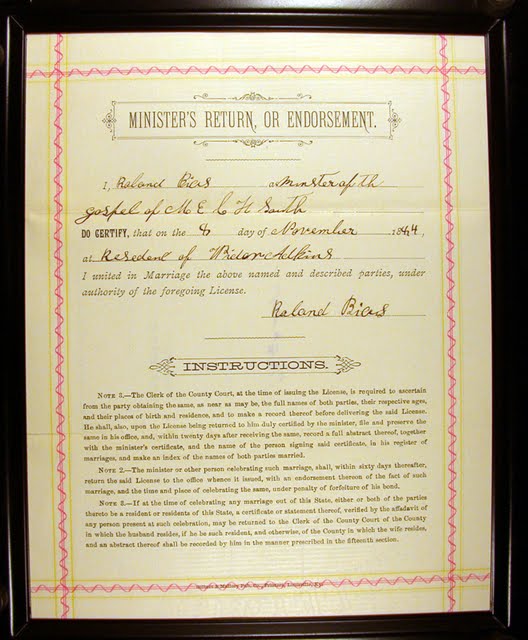 MINISTER'S RETURN, OR ENDORSEMENT.
I, Roland Bias a minster of th
gospel of M E C H South
DO CERTIFY, that on the 8 day of November 1844,
at Resedent of Widow Adkins
I united in Marriage the above named and described parties, under
authority of the foregoing License.
Roland Bias
INSTRUCTIONS.
NOTE 1.—The Clerk of the County Court, at the time of issuing the License, is required to ascertain
from the party obtaining the same, as near as may be, the full names of both parties, their respective ages,
and their places of birth and residence, and to make a record thereof before delivering the said License.
He shall, also, upon the License being returned to him duly certified by the minister, file and preserve the
same in his office, and, within twenty days after receiving the same, record a full abstract thereof, together
with the minister's certificate, and the name of the person signing said certificate, in his register of
marriages, and make an index of the names of both parties married.
NOTE 2.—The minister or other person celebrating such marriage, shall, within sixty days thereafter,
return the said License to the office whence it issued, with an endorsement thereon of the fact of such
marriage, and the time and place of celebrating the same, under penalty of forfeiture of his bond.
NOTE 3.—If at the time of celebrating any marriage out of this State, either or both of the parties
thereto be a resident or residents of this State, a certificate or statement thereof, verified by the affidavit of
any person present at such celebration, may be returned to the Clerk of the County Court of the County
in which the husband resides, if he be such resident, and otherwise, of the County in which the wife resides,
and an abstract thereof shall be recorded by him in the manner prescribed in the fifteenth section.